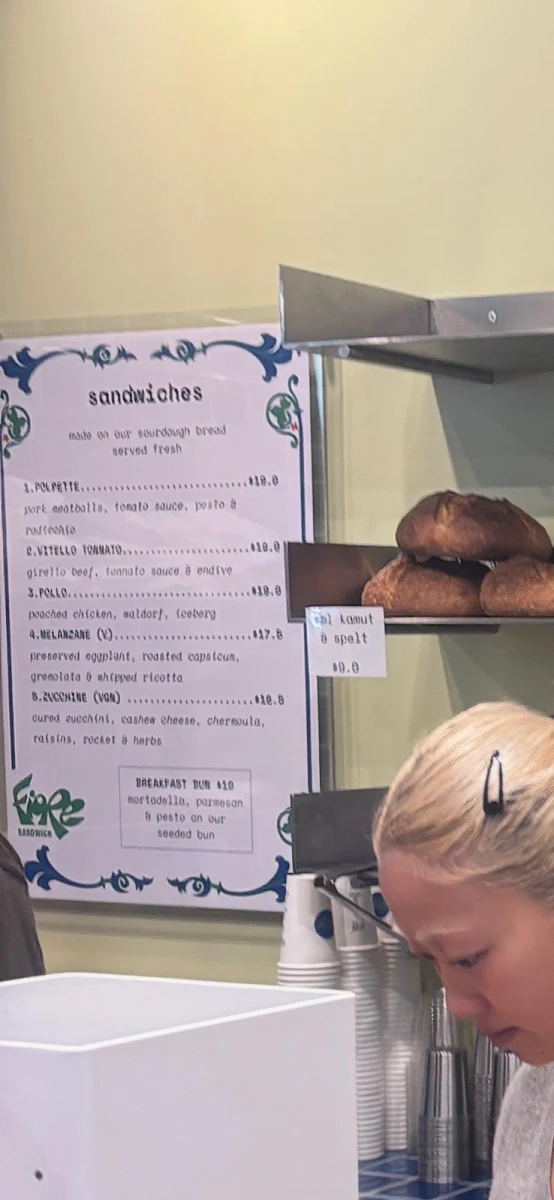 sandwiches
made on our sourdough bread
served fresh
1.POLPETTE............................
pork meatballs, tomato sauce, pesto &
radicchio
2.VITELLO TONNATO.....................
girello beef, tonnato sauce & endive
3.POLLO...............................
poached chicken, waldorf, iceberg
4.MELANZANE (V).......................
preserved eggplant, roasted capsicum,
gremolata & whipped ricotta
5.ZUCCHINE (VGN) ....................
cured zucchini, cashew cheese, chermoula,
raisins, rocket & herbs
BREAKFAST BUN $10
mortadella, parmesan
& pesto on our
seeded bun
FIORE
SANDWICH
kamut
& spelt
$9.0